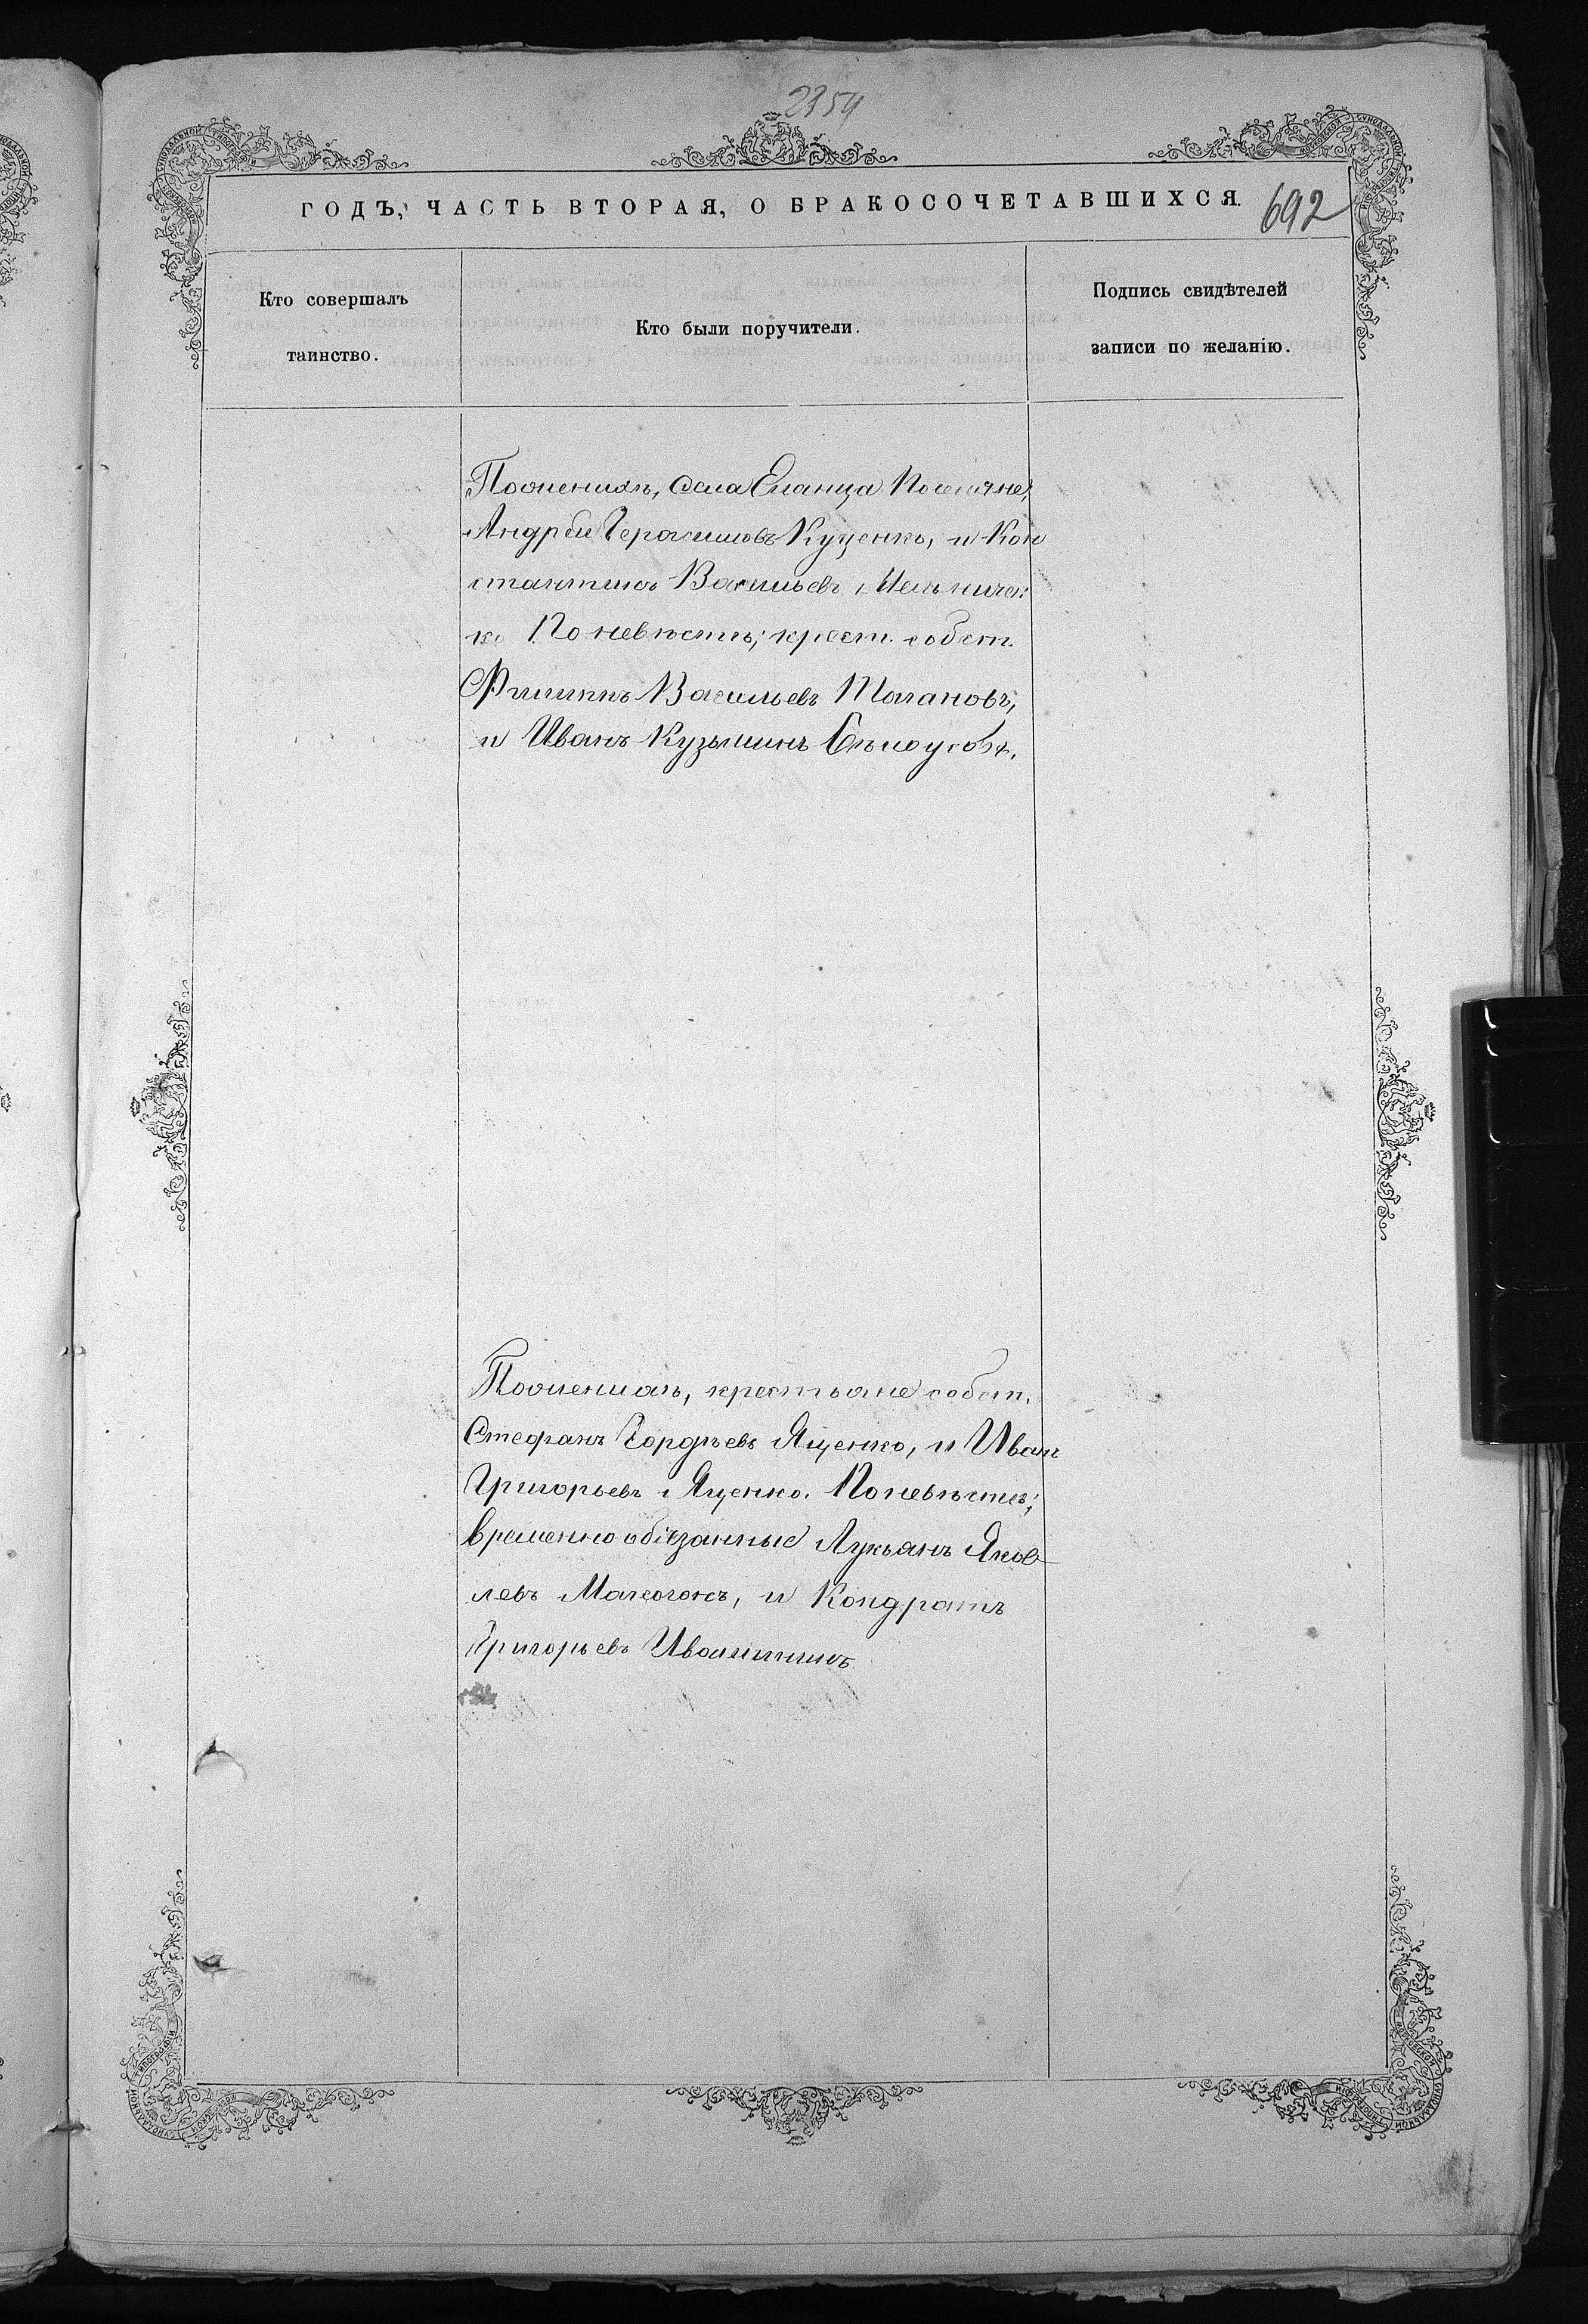 2354
ГОДЪ, ЧАСТЬ ВТОРАЯ, О БРАКОСОЧЕТАВШИХСЯ. 692
Кто совершалъ
таинство.
Кто были поручители.
Подпись свидѣтелей
записи по желанію.
По женихѣ, села Еланца Поселяне,
Андрей Герасимовъ Куценко, и Кон
стантинъ Васильевъ Мельничен:
ко По невѣстѣ; крест. собст.
Филиппъ Васильевъ Талановъ,
и Иванъ Кузьминъ
По женихѣ, крестьяне собст.
Стефанъ Гордѣевъ Яценко, и Иванъ
Григорьевъ Яценко. По невѣстѣ;
временно обязанные Лукьянъ Яков
левъ Макогонъ, и Кондратъ
Григорьевъ